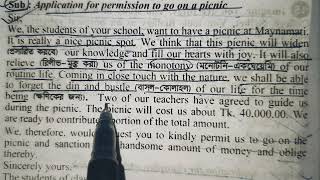 (Sub) Application for permission to go on a picnic
Sir,
We, the students of your school, want to have a picnic at Maynamati.
is really a nice picnic spot. We think that this picnic will widen
our knowledge and fill our hearts with joy. It will also
relieve us of the monotony of our
routine life. Coming in close touch with the nature, we shall be able
to forget the din and bustle of our life for the time
being Two of our teachers have agreed to guide us
during the picnic. The picnic will cost us about Tk. 40,000.00. We
are ready to contribute portion of the total amount.
We, therefore, request you to kindly permit us to go on the
picnic and sanction handsome amount of money and oblige
thereby.
Sincerely yours,
The students of